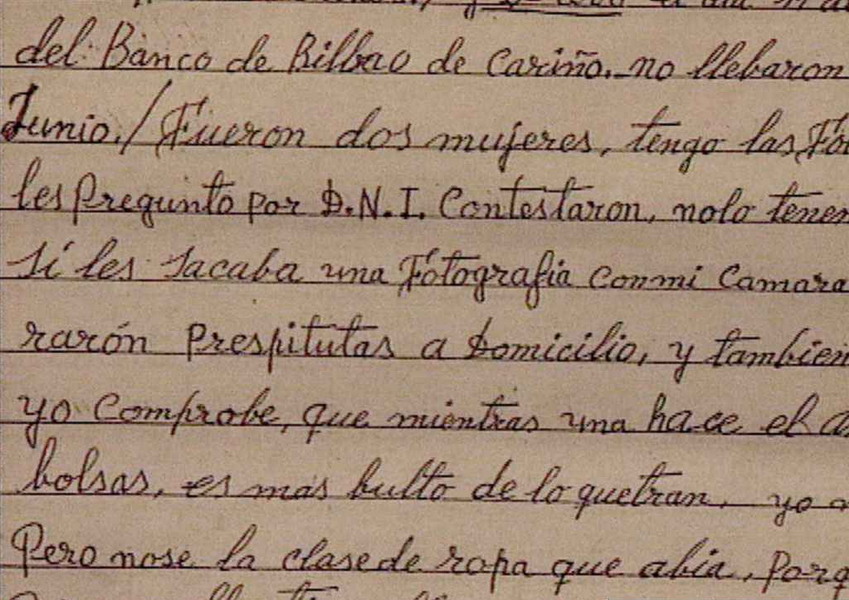 del Banco de Bilbao de Cariño. no llebaron
Junio./ Fueron dos mujeres, tengo las
les Pregunto por D.N.I. Contestaron, nolo tenen
Sí les Sacaba una Fótografia conmi Camara
rarón Prespitutas a Domicilio, y tambien
yo Comprobe, que mientras una hace el
bolsas, es mas bulto de lo quetran, yo
Pero nose la clasede ropa que abia, Porq